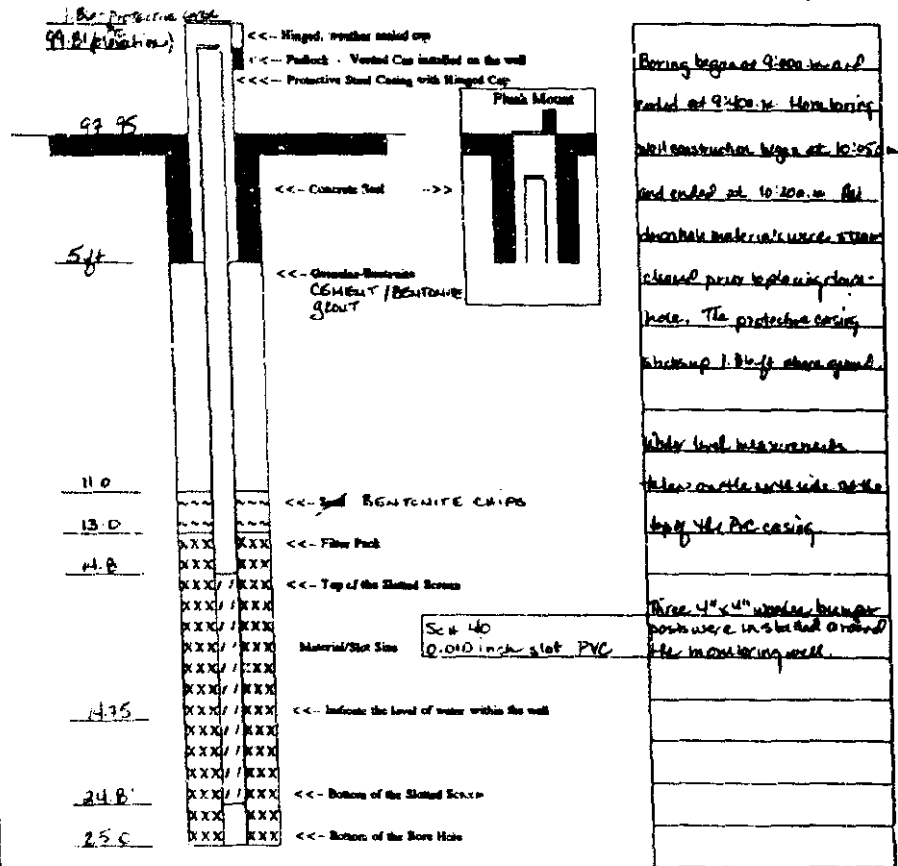 99.81 (elevation)
<<-- Hinged, weather sealed cap
<<-- Padlock - Vented Cap installed on the well
<<<-- Protective Steel Casing with Hinged Cap
Flush Mount
97.95
<<-- Concrete Seal -->>
5 ft
<<-- Granular Bentonite
CEMENT / BENTONITE
GROUT
11.0
<<-- BENTONITE CHIPS
13.0
<<-- Filter Pack
14.8
<<-- Top of the Slotted Screen
Material/Slot Size
Sch 40
0.010 inch slot PVC
14.75
<<-- Indicate the level of water within the well
24.8'
<<-- Bottom of the Slotted Screen
<<-- Bottom of the Bore Hole
Boring began at 9:00a.m. and
ended at 9:40a.m. Monitoring
well construction began at 10:05a.m
and ended at 10:20a.m. All
downhole materials were steam
cleaned prior to placing down-
hole. The protective casing
sticks up 1.86 ft above ground.
Water level measurements
taken on the north side of the
top of the PVC casing
Three 4" x 4" wooden bumper
posts were installed around
the monitoring well.